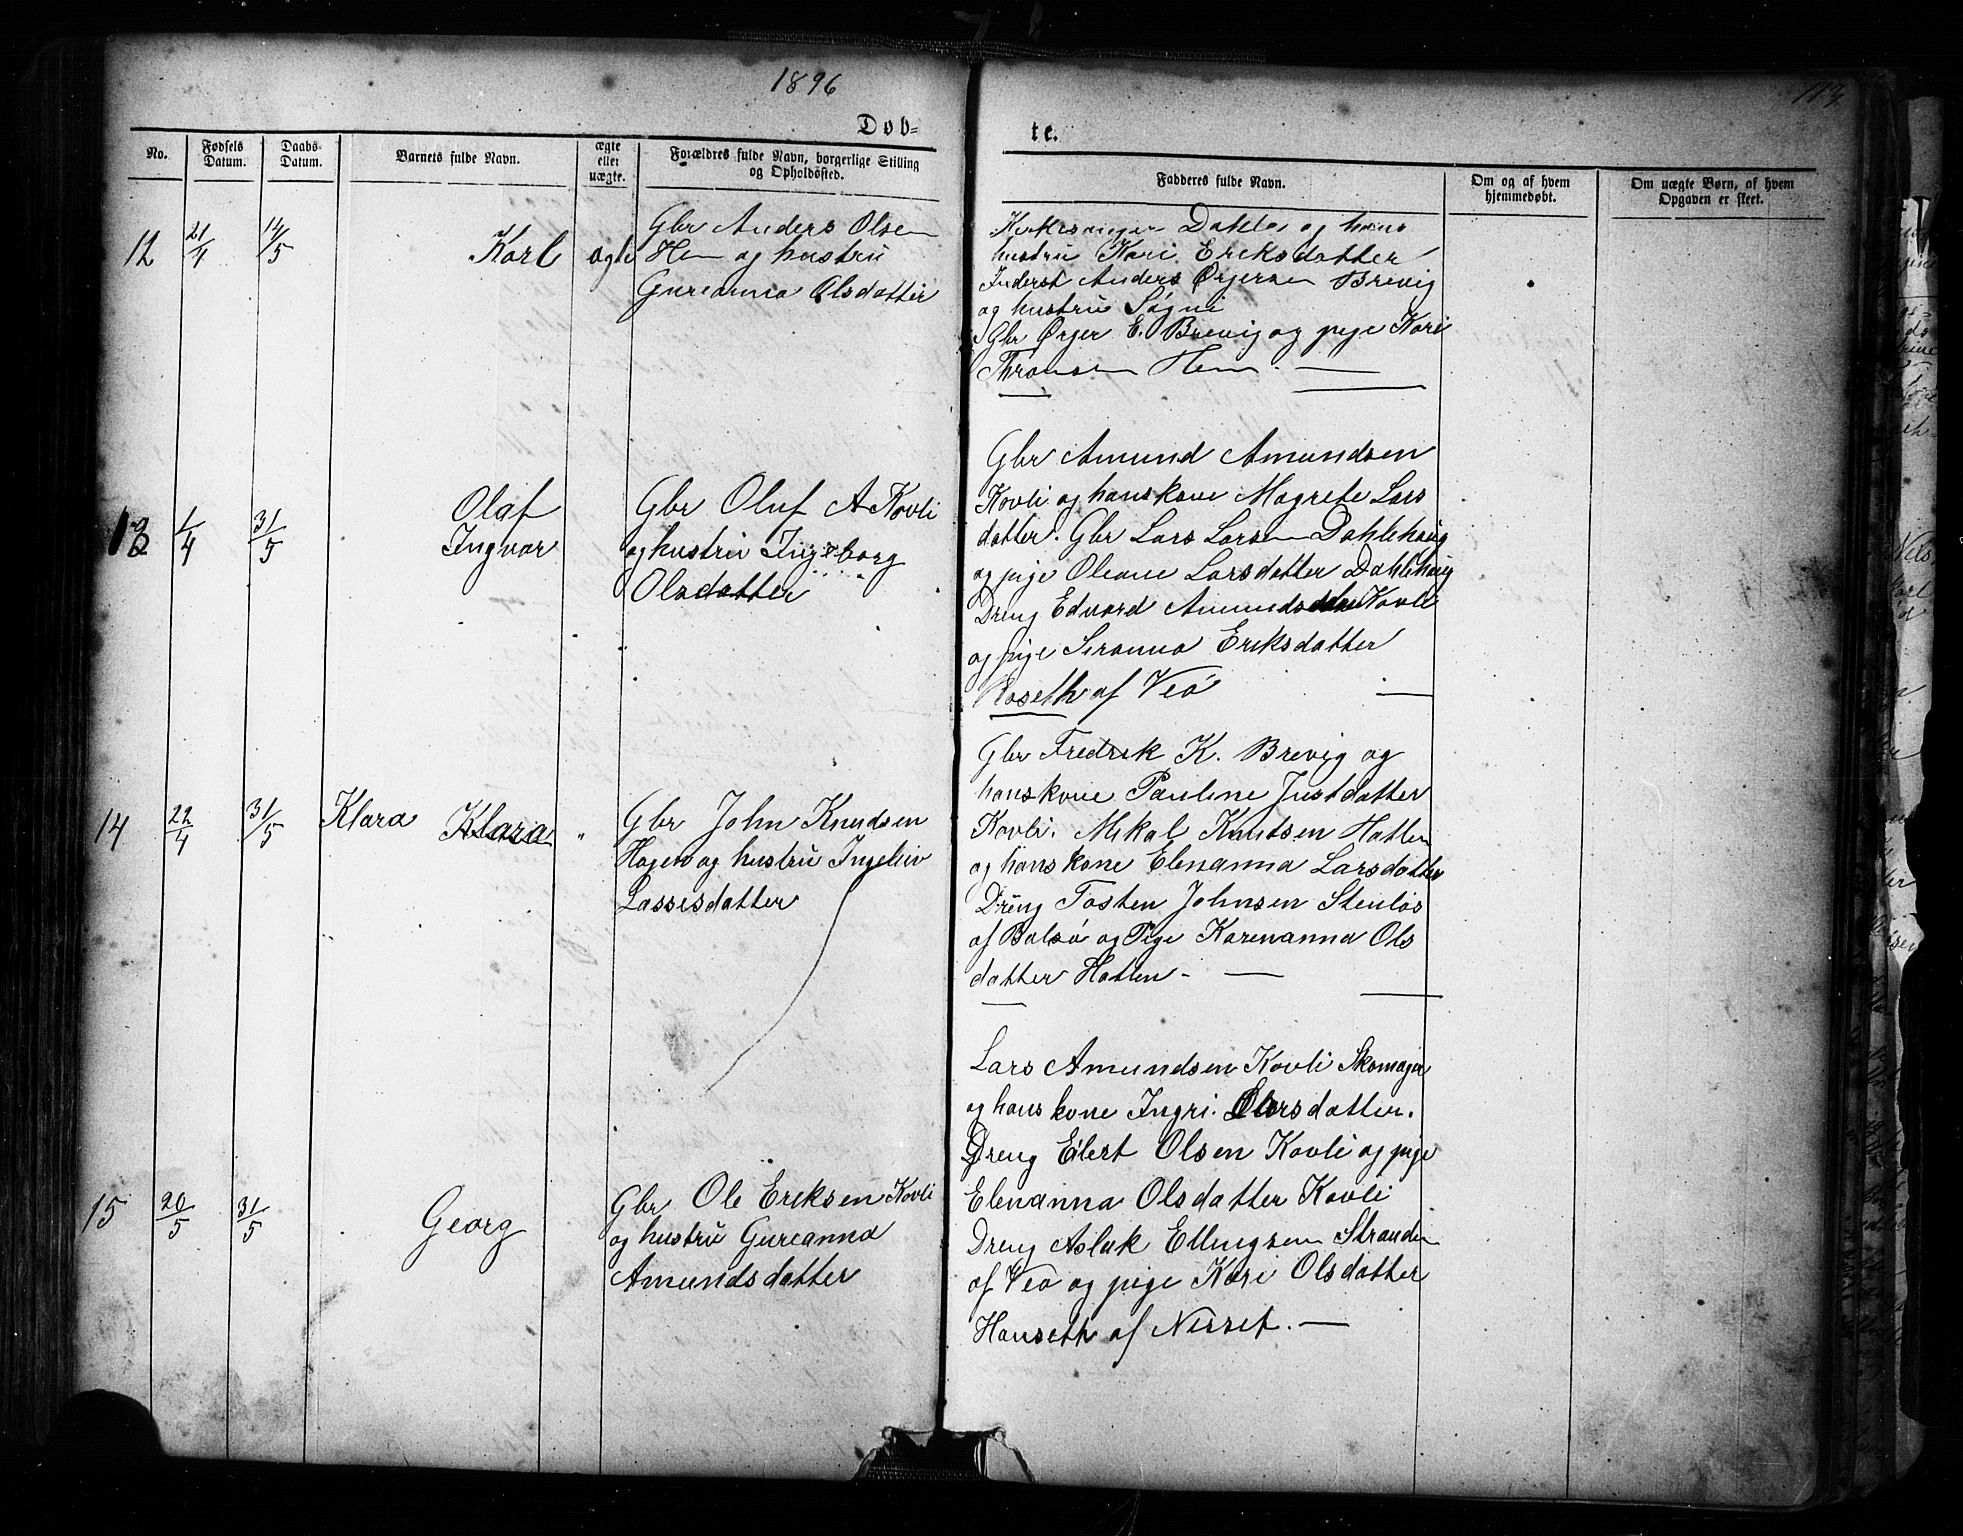 1896
113
Döb=
te.
No.
Fødsels Datum.
Daabs-Datum.
Barnets fulde Navn.
ægte eller uægte.
Forældres fulde Navn, borgerlige Stilling og Opholdssted.
Fadderes fulde Navn.
Om og af hvem hjemmedøbt.
Om uægte Børn, af hvem Opgaven er skeet.
12
21/4
14/5
Karl
ægte
Gbr Anders Olsen
Hen og hustru
Gureanna Olsdatter
Kirkesanger Dahle og hans
hustru Kari Eriksdatter
Inderst Anders Ørjersen Brevig
og hustru Søgni
Gbr Ørjer E. Brevig og pige Kari
Thronsen Hen.
13
1/4
31/5
Olaf
Ingvar
Gbr Oluf A Kovli
og hustru Ingeborg
Olsdatter
Gbr Amund Amundsen
Kovli og hans kone Magrete Lars
datter. Gbr Lars Larsen Dahlehøug
og pige Oleane Larsdatter Dahlehøug
Dreng Edvard Amundsen Kovli
og pige Seranna Eriksdatter
Roseth af Veø
14
22/4
31/5
Klara
Klara
"
Gbr John Knudsen
Hagen og hustru Ingeliv
Lassesdatter
Gbr Fredrik K. Brevig og
hans kone Pauline Justdatter
Kovli. Mikal Knutsen Hatlen
og hans kone Elenanna Larsdatter
Dreng Tosten Johnsen Stenløs
af Bolsø og Pige Karenanna Ols
datter Hatlen -
15
20/5
31/5
Georg
Gbr Ole Eriksen Kovli
og hustru Gureanna
Amundsdatter
Lars Amundsen Kovli Skomager
og hans kone Ingri. Larsdatter.
Dreng Eilert Olsen Kovli og pige
Elenanna Olsdatter Kovli
Dreng Aslak Ellingsen Stranden
af Veø og pige Kari Olsdatter
Hanseth af Nesset. —